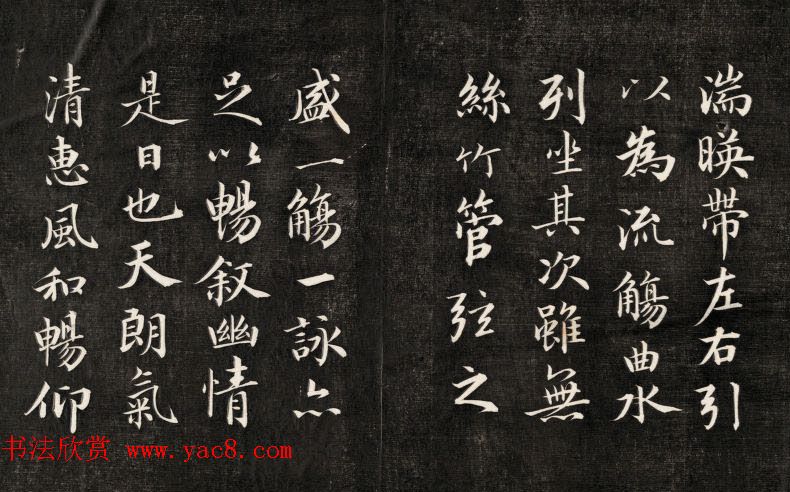 湍暎帶左右引
以為流觴曲水
列坐其次雖無
絲竹管弦之
盛一觴一詠亦
足以暢叙幽情
是日也天朗氣
清惠風和暢仰
书法欣赏 www.yac8.com